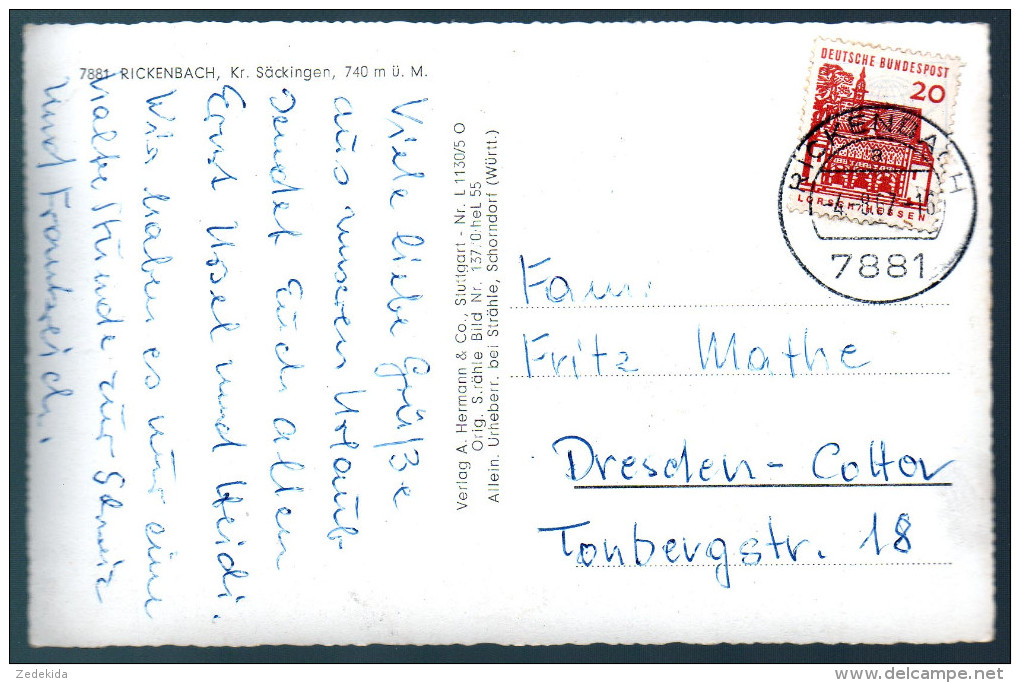 7881 RICKENBACH, Kr. Säckingen, 740 m ü. M.
Viele liebe Grüße
aus unserem Urlaub
sendet Euch allen
Ernst Ursel und Heidi.
Wir haben es nur eine
halbe Stunde zur Schweiz
und Frankreich.
Verlag A. Hermann & Co., Stuttgart - Nr. L 1130/5 O
Orig. S.rähle Bild Nr. 137/0 heL 55
Allein. Urheberr. bei Strähle, Schorndorf (Württ.)
DEUTSCHE BUNDESPOST
20
LORSCH/HESSEN
RICKENBACH
a
7881
Fam.
Fritz Mathe
Dresden - Cottav
Tonbergstr. 18
Zedekida
delcampe.net